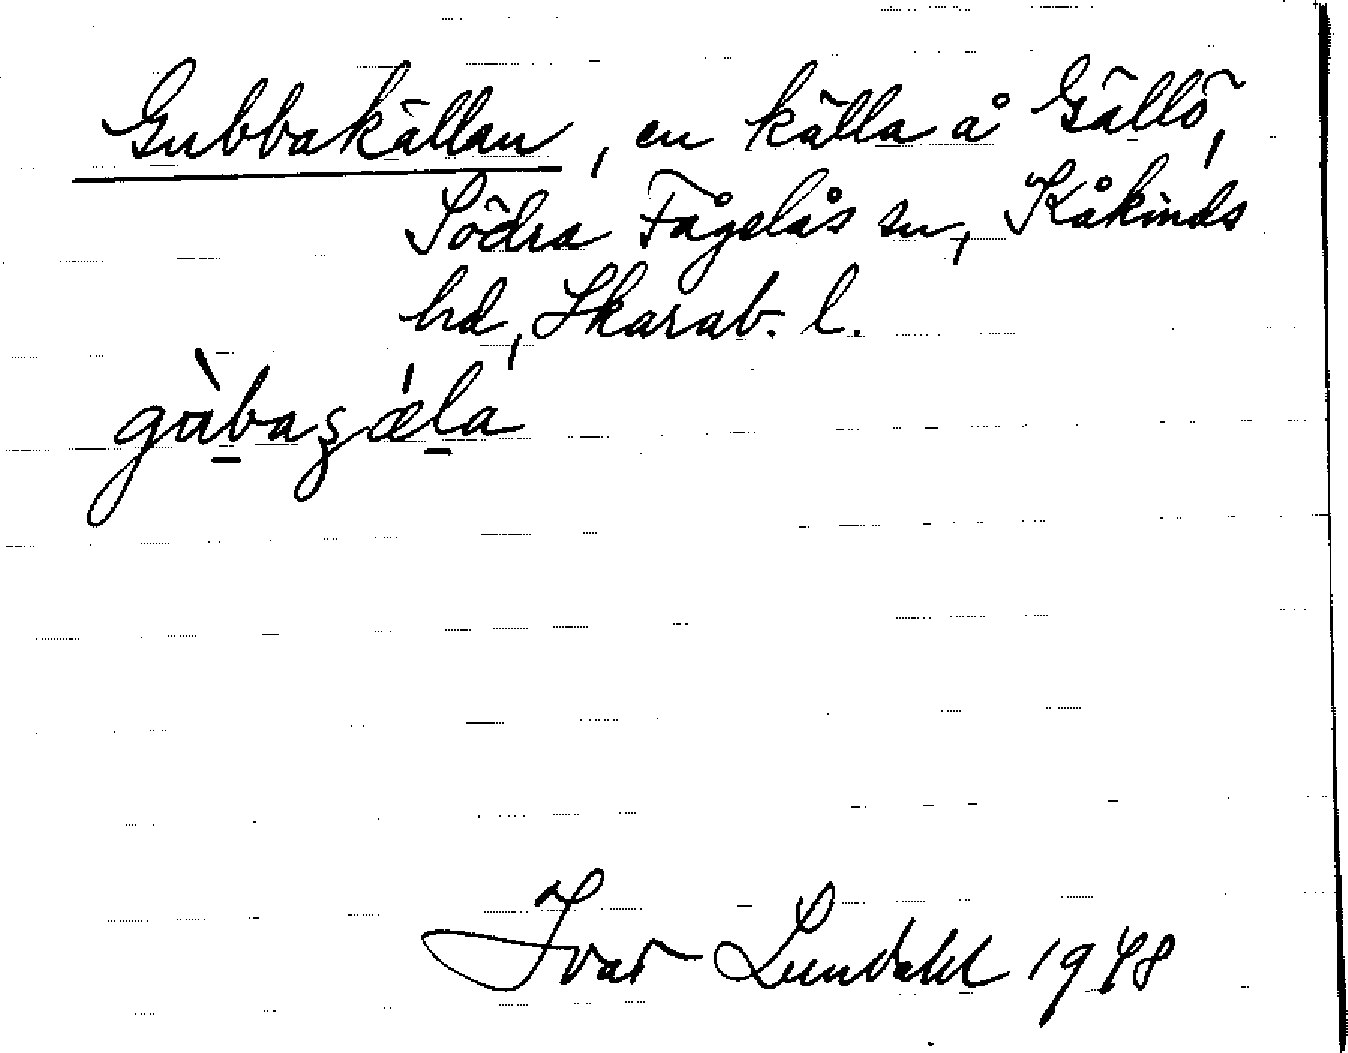 Gubbakällan, en källa å Gällö,
Södra Fågelås sn, Kåkinds
hd, Skarab. l.
Ivar Lundahl 1948